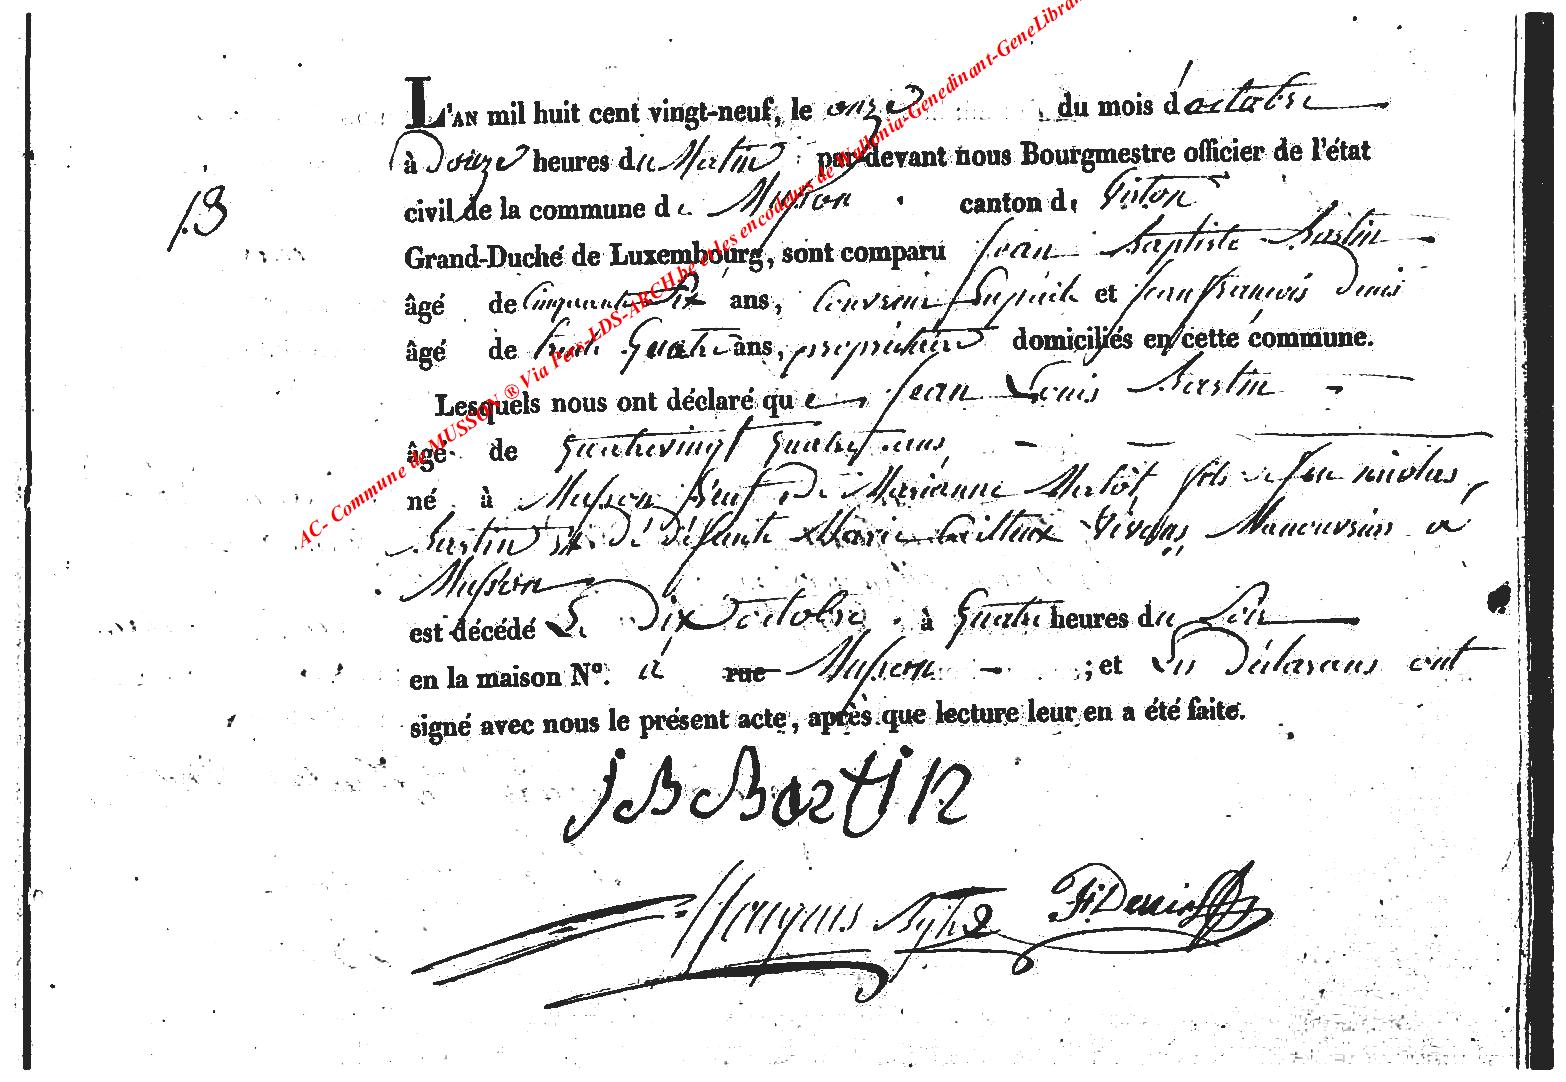 L'AN mil huit cent vingt-neuf, le onze du mois d'octobre
à Douze heures du Matin par-devant nous Bourgmestre officier de l'état
13
civil de la commune de Musson canton de Virton
Grand-Duché de Luxembourg, sont comparu Jean Baptiste Bastin
âgé de Cinquante Six ans, Couvreur et Jean françois denis
âgé de trente Quatre ans, propriétaire domiciliés en cette commune.
Lesquels nous ont déclaré que Jean Louis Bastin
âgé de Quatrevingt Quatre ans
né à Musson veuf de Marianne fils de feu nicolas
Bastin et de défunte Marie vivans Manouvrier à
Musson
est décédé Le Dix octobre à Quatre heures du Soir
en la maison N°. à rue Musson ; et Les Déclarans ont
signé avec nous le présent acte, après que lecture leur en a été faite.
J B Bastin
F. Denis
AC- Commune de MUSSON ® Via Pers-LDS-ARCH.be et les encodeurs de Wallonia-Genedinant-GeneLibrai